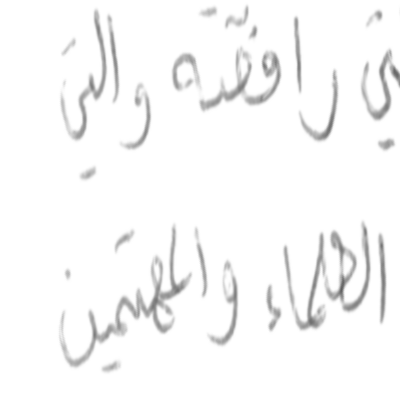 رافقته والتي
العلماء والمهتمين